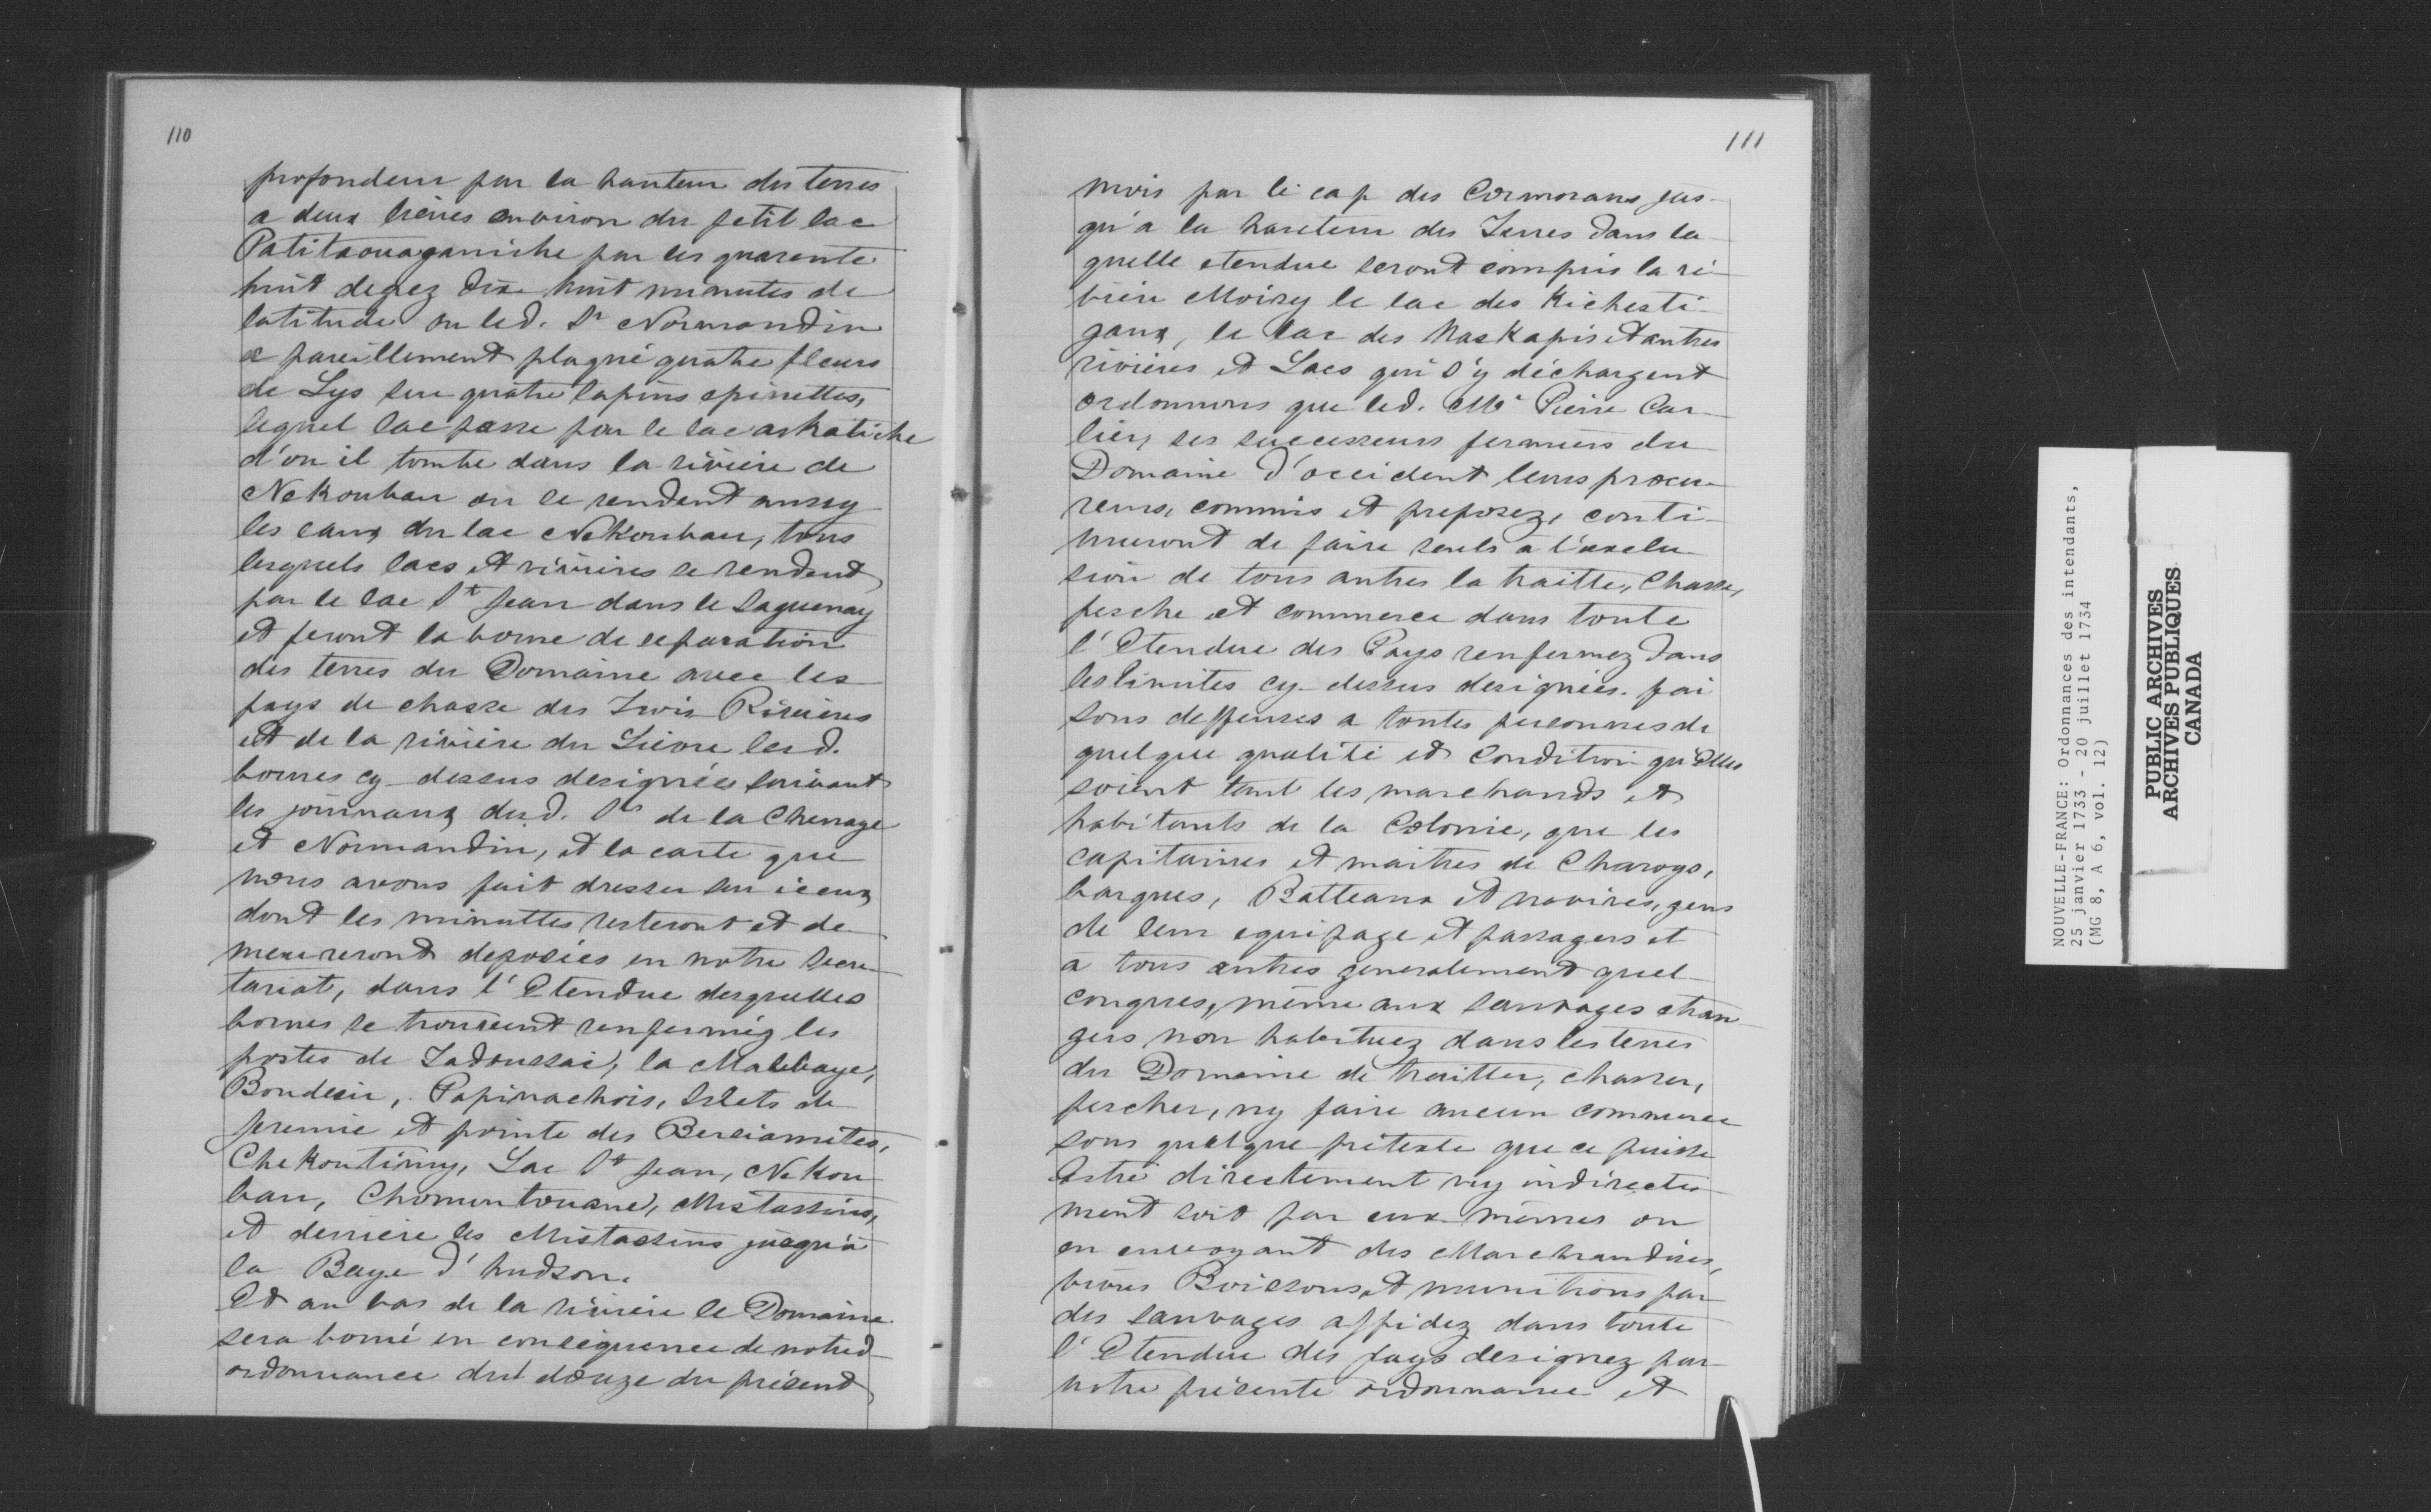 110
profondeur par la hauteur des terres
a deux lieües environ du petit lac
Patitaouaganiche par les quarente
huit degrez dix huit minutes de
latitude ou led. Sr Normandin
a pareillement plaqué quatre fleurs
de Lys sur quatre sapins epinettes,
lequel lac passe par le lac askatiche
d'ou il tombe dans la rivière de
Nekoubau ou se rendent aussy
les eaux du lac Nekoubau, tous
lesquels lacs et rivières se rendent
par le lac St Jean dans le Saguenay
et feront la borne de separation
des terres du Domaine avec les
pays de chasse des Trois Rivières
et de la rivière du Lièvre lesd.
bornes cy-dessus designées suivant
les journaux desd. Srs de la Chenaye
et Normandin, et la carte que
nous avons fait dresser sur iceux
dont les minuttes resteront et de
meureront deposées en notre secre
tariat, dans l'Etendue desquelles
bornes se trouvent renfermez les
postes de Tadoussac, la Malebaye,
Bondesir, Papinachois, Islets de
Jeremie et pointe des Bersiamites,
Chekoutimy, Lac St Jean, Nekou
bau, Chomontouane, Mistassins,
et derrière les Mistassins jusqu'à
la Baye d'hudson.
Et au bas de la rivière le Domaine
sera borné en consequence de notred
ordonnance du douze du présent
111
mois par le cap des Cormorans jus-
qu'a la hauteur des Terres dans la
quelle etendue seront compris la ri
vière Moisy le lac des Kichesti-
gaux, le lac des Naskapis et autres
rivières et Lacs qui s'y déchargent
ordonnons que led. Me Pierre Car
lier, ses successeurs fermiers du
Domaine d'occident leurs procu-
reurs, commis et preposez, conti-
nueront de faire seuls a l'exclu
sion de tous autres la traitte, Chasse,
pesche et commerce dans toute
l'Etendue des Pays renfermez dans
les limites cy-dessus designées. fai
sons deffenses a toutes personnes de
quelque qualité et Condition qu'Elles
soient tant les marchands et
habitants de la Colonie, que les
capitaines et maitres de Charoys,
barques, Batteaux et navires, gens
de leur equipage et passagers et
a tous autres generalement quel
conques, même aux sauvages etran
gers non habituez dans les terres
du Domaine de traitter, chasser,
pescher, ny faire aucun commerce
sous quelque prétexte que ce puisse
Estre directement ny indirecte
ment soit par eux mêmes ou
en envoyant des Marchandises,
vivres Boissons et munitions par
des sauvages affidez dans toute
l'Etendue des pays designez par
notre présente ordonnance et
NOUVELLE-FRANCE: Ordonnances des intendants,
25 janvier 1733 - 20 juillet 1734
(MG 8, A 6, vol. 12)
PUBLIC ARCHIVES
ARCHIVES PUBLIQUES
CANADA